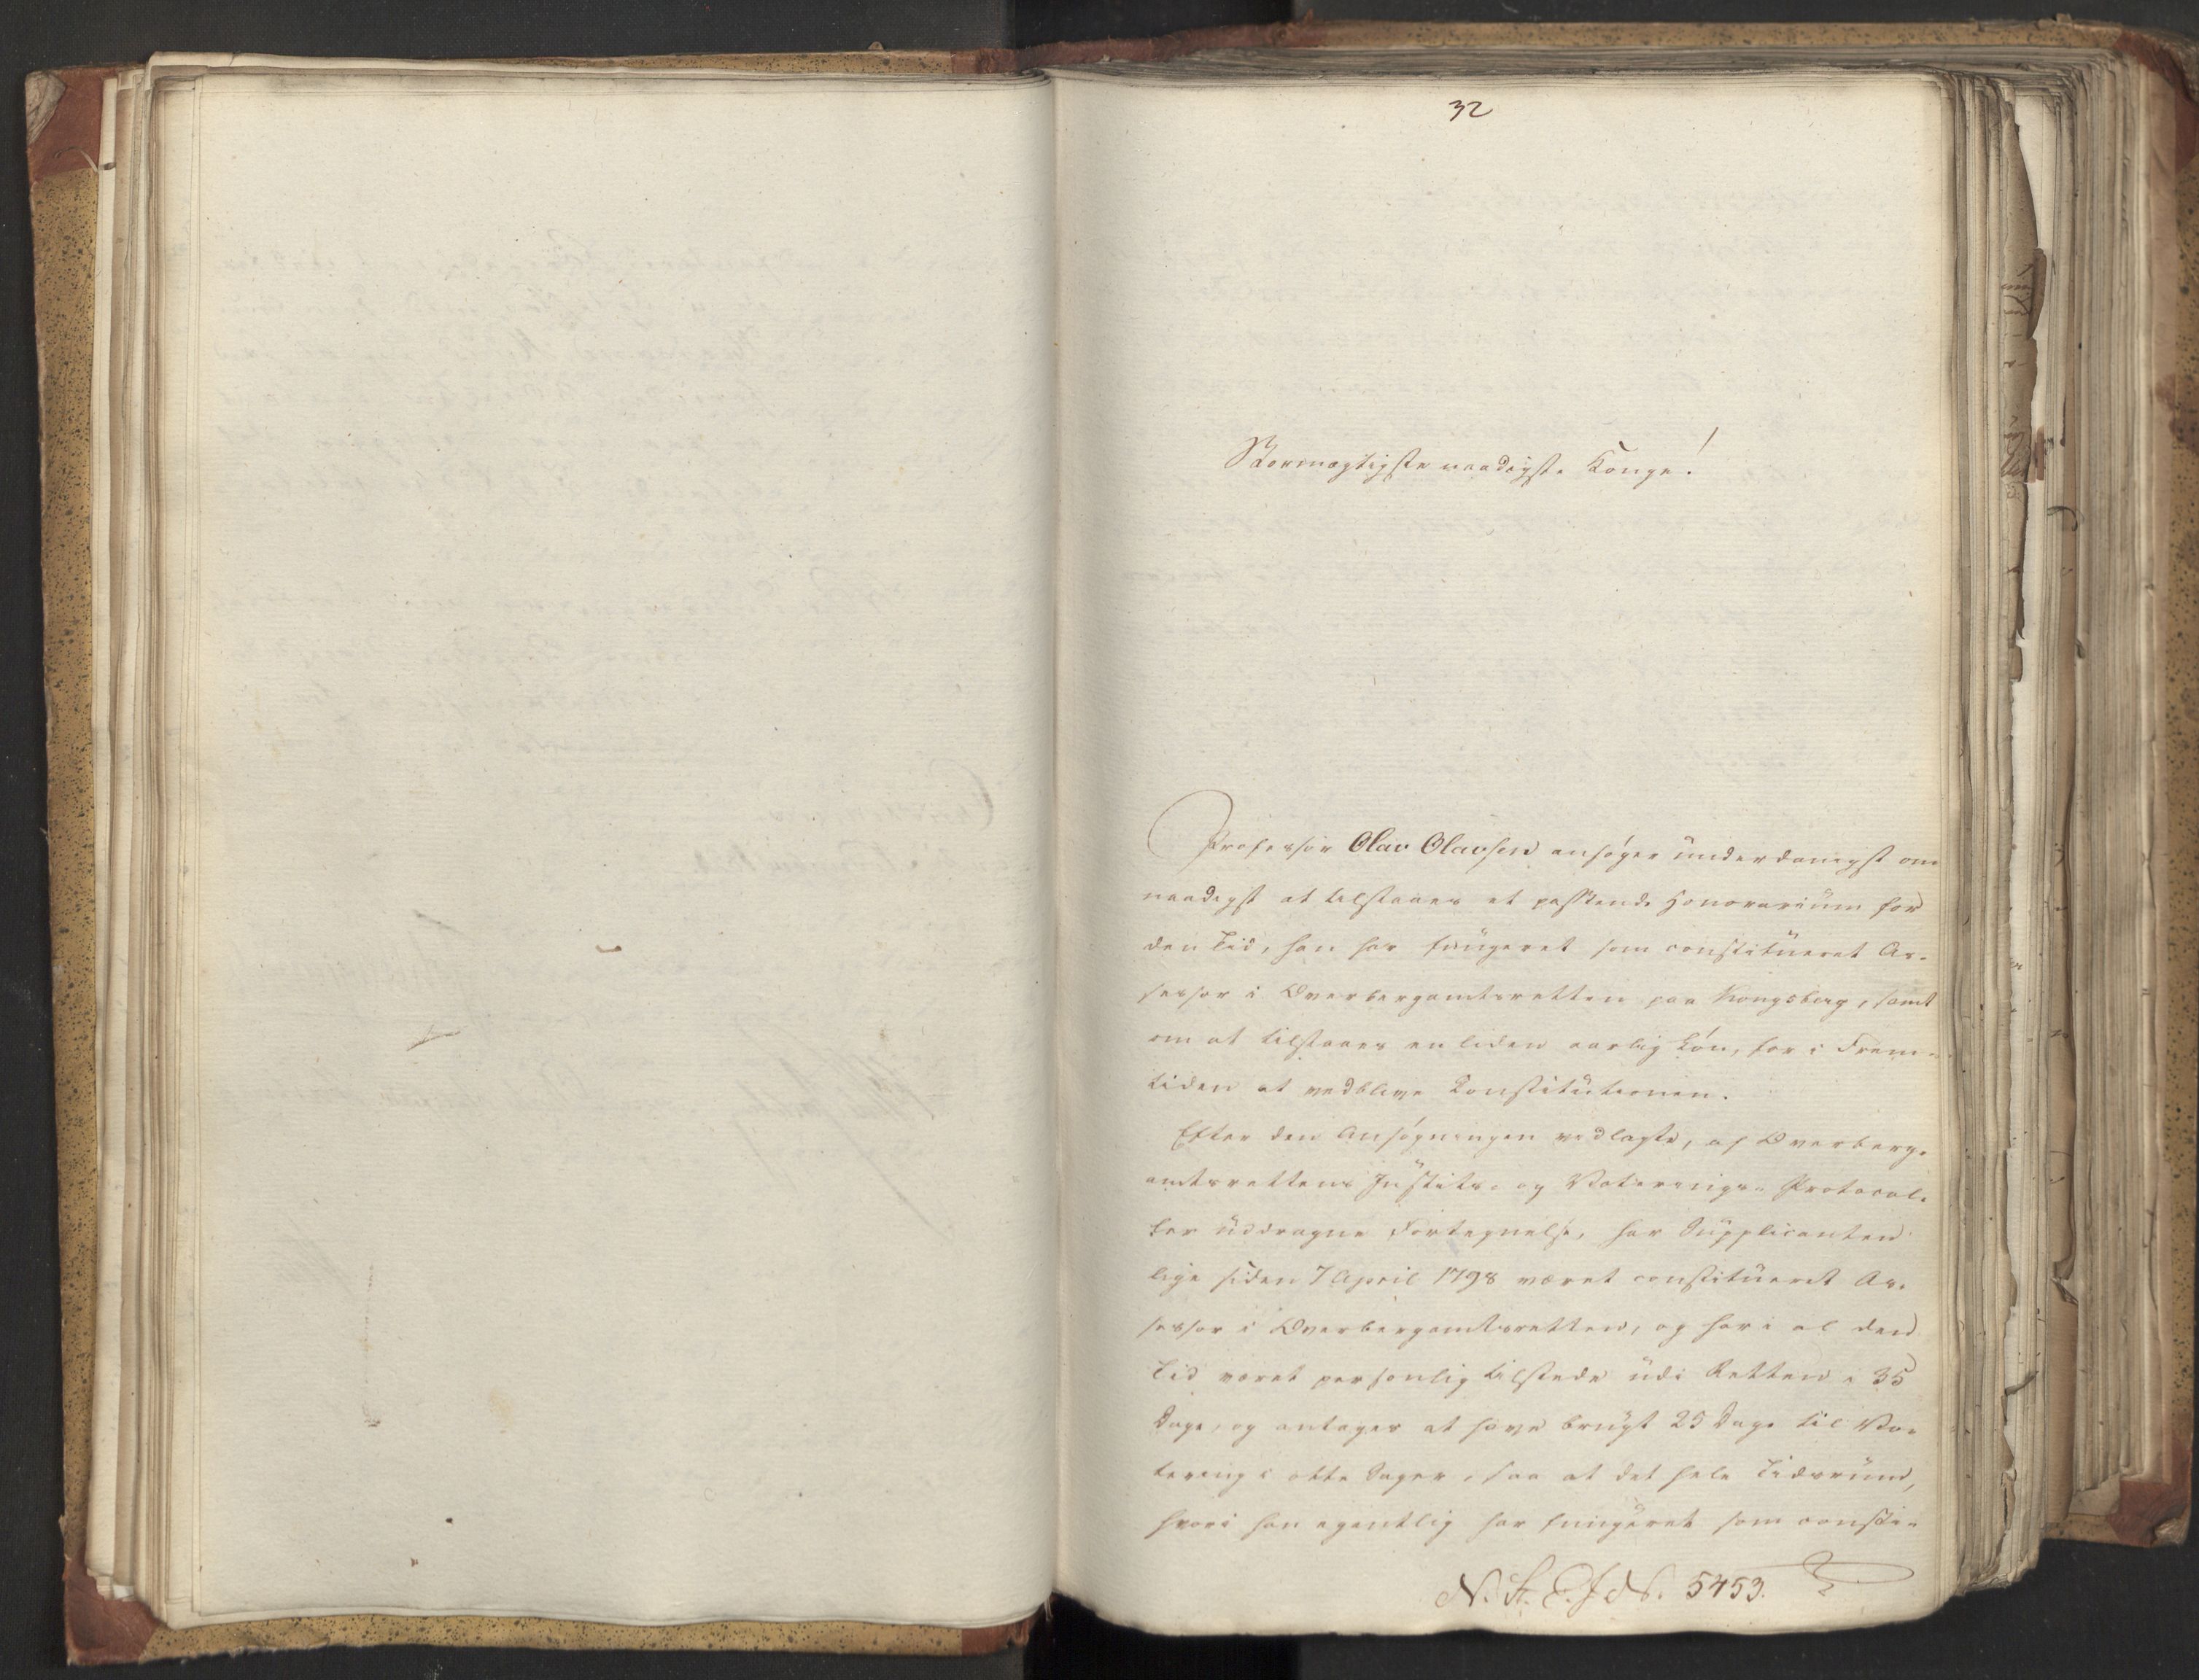 32
Stormægtigste naadigste Konge!
Professor Olav Olavsen ansøger underdanigst om
naadigst at tilstaaes et passende Honorarium for
den Tid, han har fungeret som constitueret As-
sessor i Overbergamtsretten paa Kongsberg, samt
om at tilstaaes en liden aarlig Løn, for i Frem-
tiden at vedblive Constitutionen.
Efter den Ansøgningen vedlagte, af Overberg-
amtsrettens Justits- og Voterings-Protocol-
ler uddragne Fortegnelse, har Supplicanten
lige siden 7 April 1798 været constitueret As-
sessor i Overbergamtsretten, og har i al den
Tid været personlig tilstede udi Retten i 35
Dage, og antager at have brugt 25 Dage til Vo-
tering i otte Sager, saa at det hele Tidsrum,
hvori han egentlig har fungeret som consti-
N. St. E. J. N. 5453.